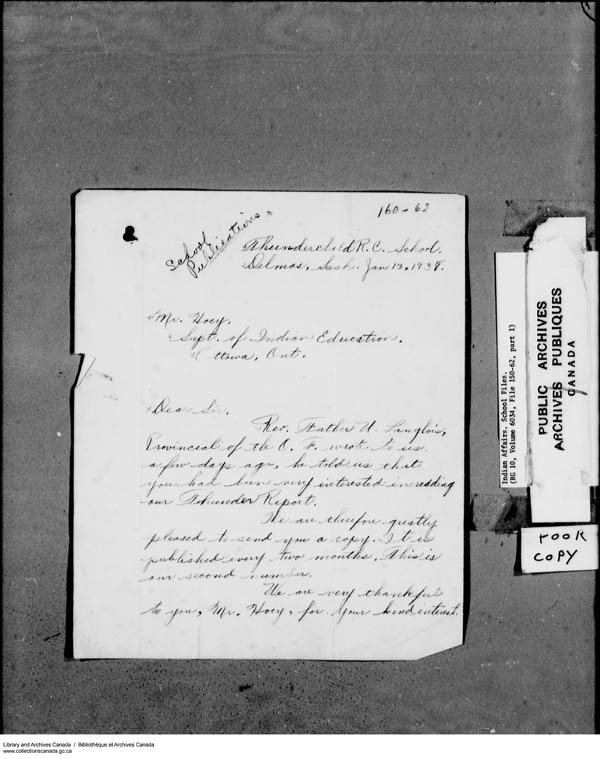 160-62
School
Publications
Thunderchild R.C. School,
Delmas, Sask. Jan 13, 1938.
Mr. Hoey,
Supt. of Indian Education,
Ottowa, Ont.
Dear Sir,
Rev. Father U. Langlois,
Provincial of the O. F. wrote to us
a few days ago, he told us that
you had been very interested in reading
our Thunder Report.
We are therefore greatly
pleased to send you a copy. It is
published every two months. This is
our second number.
We are very thankful
to you, Mr. Hoey, for your kind interest.
Indian Affairs. School Files.
(RG 10, Volume 6034, File 150-62, part 1)
PUBLIC ARCHIVES
ARCHIVES PUBLIQUES
CANADA
POOR
COPY
Library and Archives Canada / Bibliothèque et Archives Canada
www.collectionscanada.gc.ca